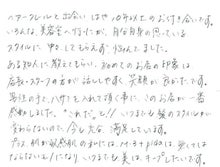 ヘアークレールと出会い はや10年以上のお付き合いです。
いろんな美容室へ行ったが、自分自身の思っている
スタイルに 中々してもらえず 悩んでました。
ある知人に教えてもらい、初めてのお店の印象は、
店長・スタッフの方が話しやすく 笑顔が良かったです。
男性の手でハサミを入れて頂く事に、このお店が一番
感動しました。"これだ。!!" いつまでも髪のスタイルが
変わらないので、今も充分 満足しています。
プラス 肌が敏感肌の私には は、必要としては
ならないものになり いつまでも美は、キープしたいです。